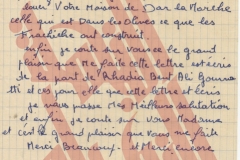 louer? Votre Maison de Dar la Marche
celle qui est Dans les Olives ce que les
Frachiche ont construit.
enfin je conte sur vous ce le grand
plaisir que Me faite cette lettre est ecris
de la part de Rhadia Bent Ali
et ces pour elle que cette lettre et ecris
je vous passe Mes Meilleurs salutation
et enfin je conte sur Vous Madame
et c'est le grand plaisir que Vous me faite
Merci Beaucoup. et Merci encore